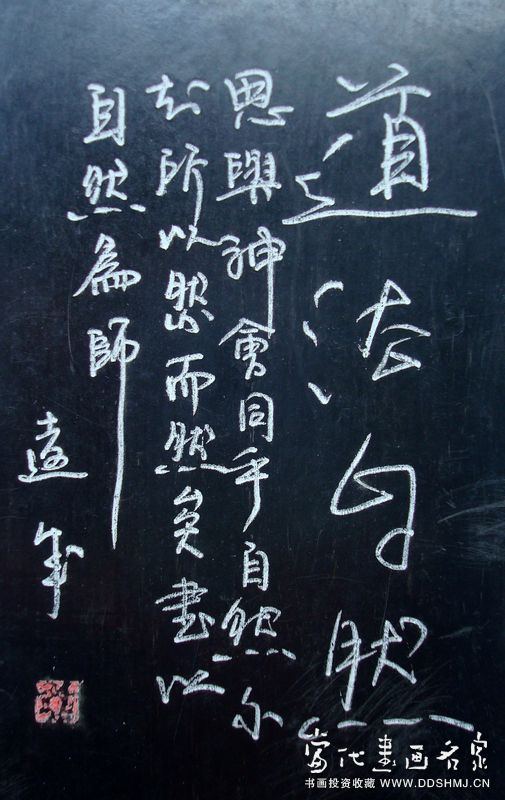 道法自然
思與神會同乎自然不
知所以然而然矣書以
自然為師
遠軍
當代書画名家
书画投资收藏 WWW.DDSHMJ.CN